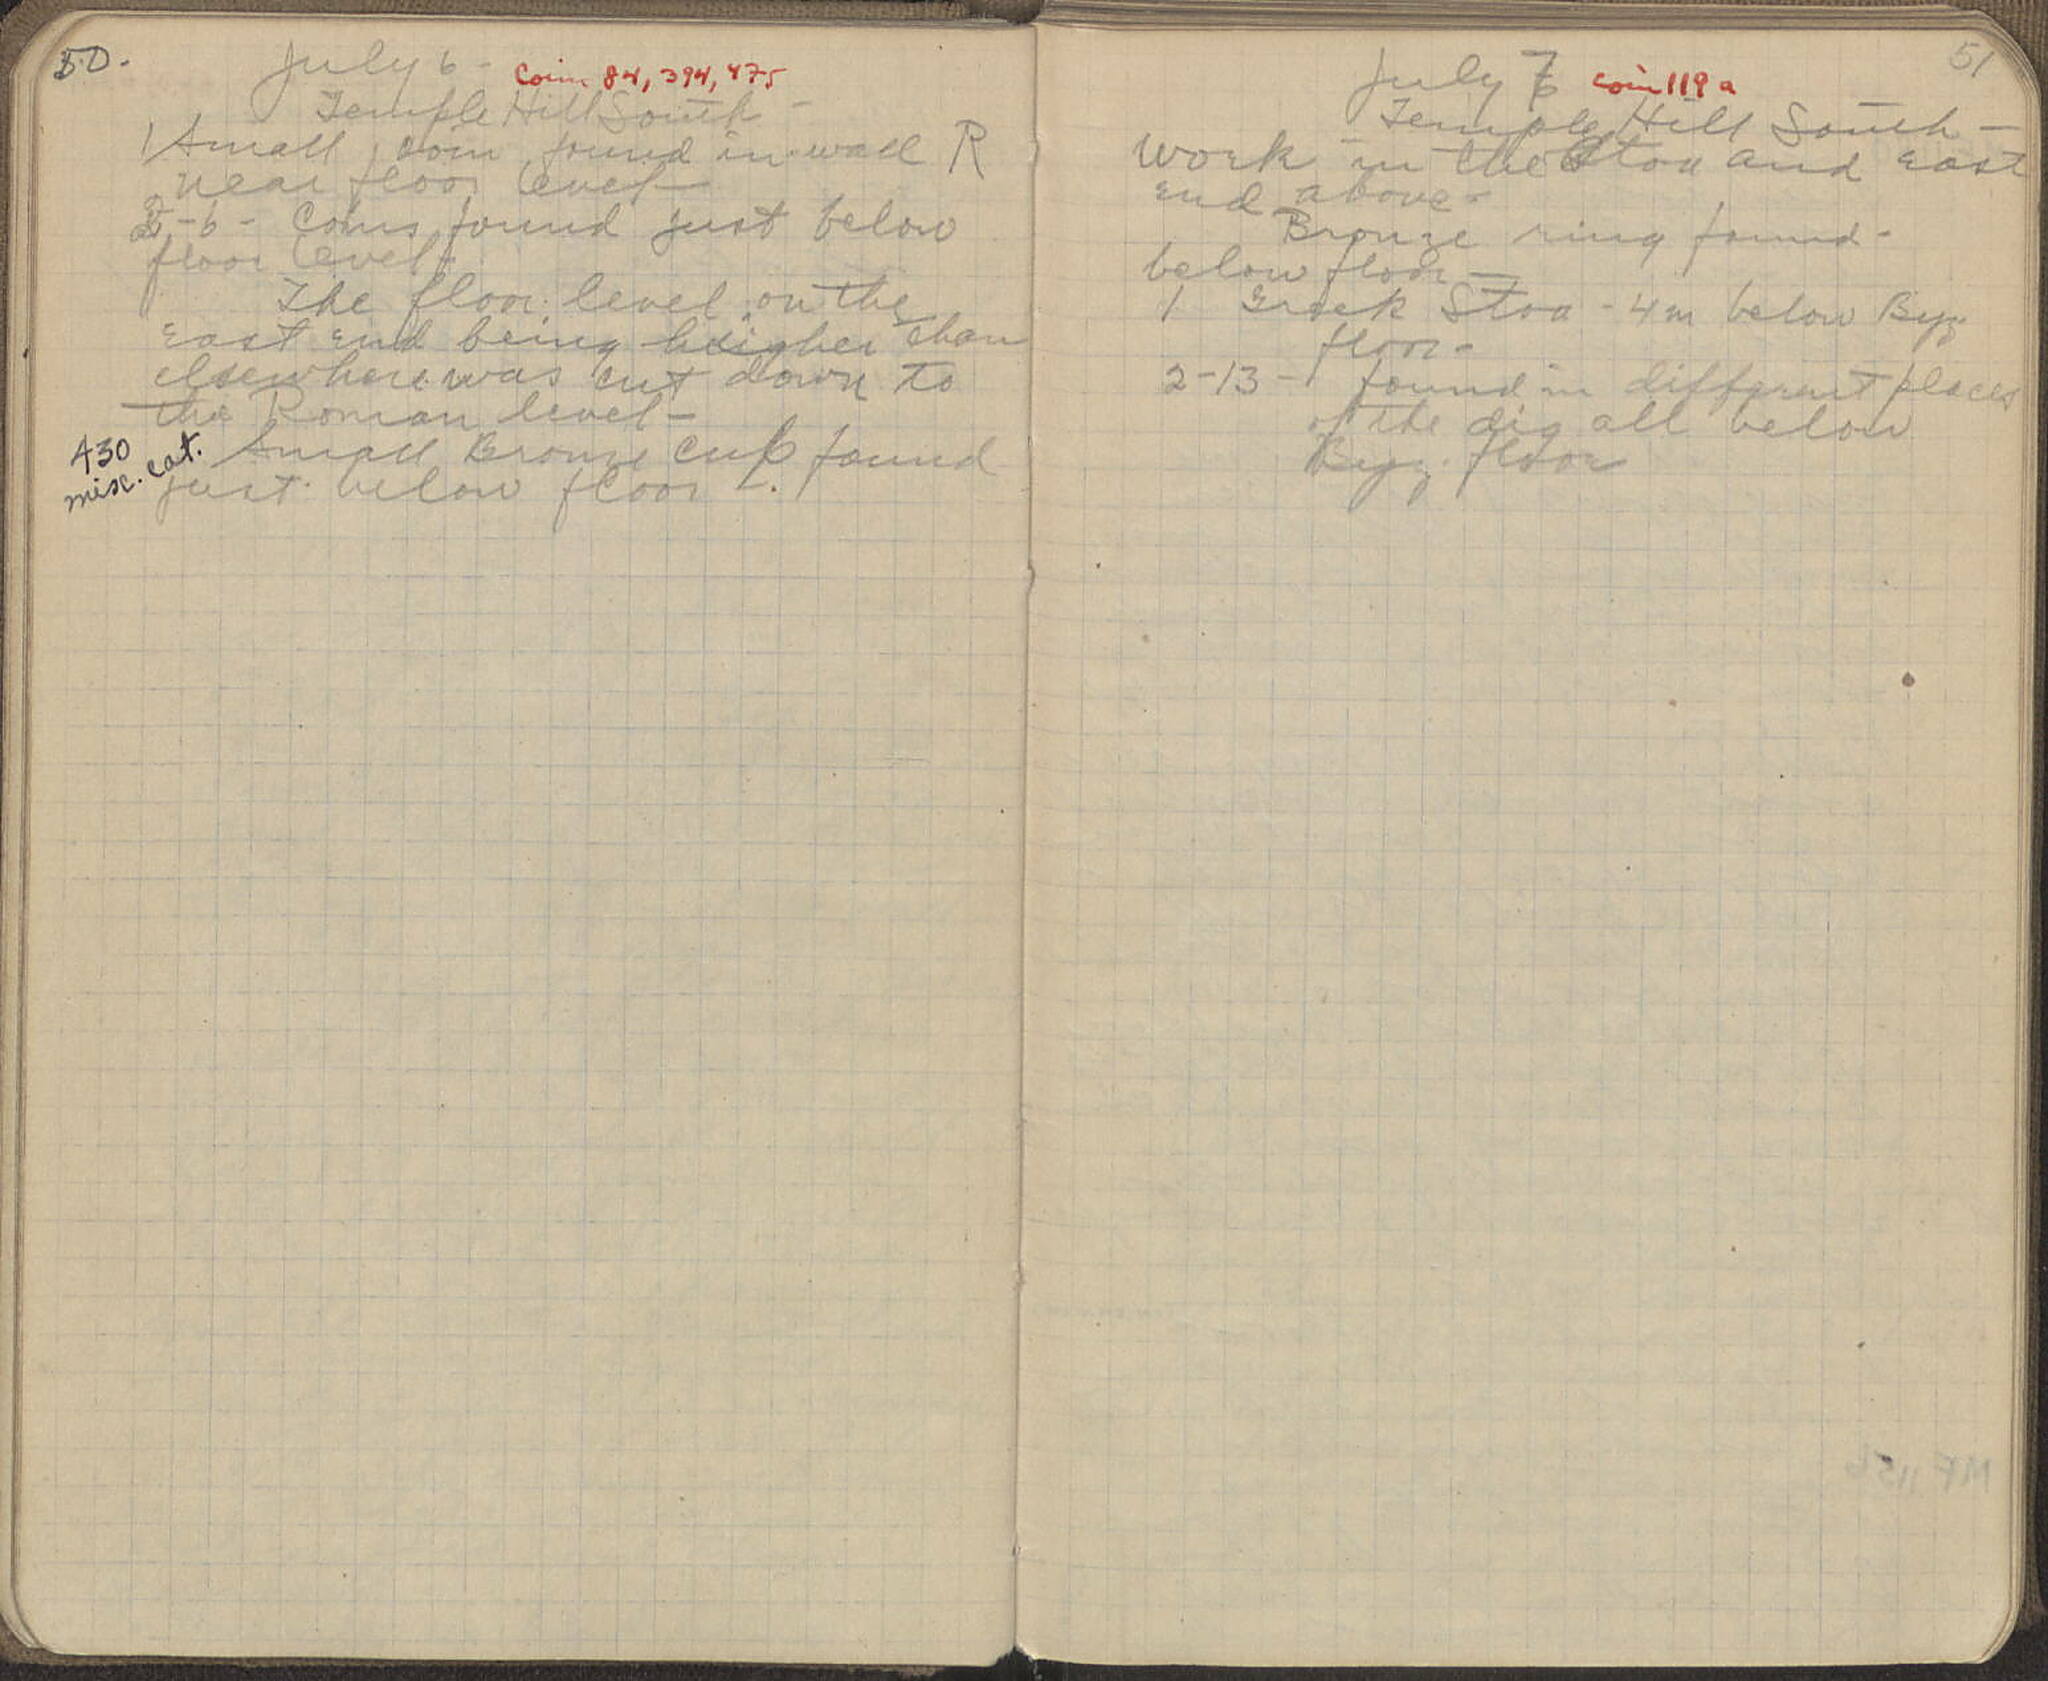 50.
July 6 -
Coins 84, 394, 475
Temple Hill South -
1 Small coin found in wall R
near floor level -
2-6 - Coins found just below
floor level.
The floor level on the
East End being heigher than
elsewhere was cut down to
the Roman level -
430
misc. cat.
Small Bronze cup found
just below floor -.
51
July 7
coin 119 a
Temple Hill South -
Work in the Stoa and East
End above -
Bronze ring found -
below floor -
1 Greek Stoa - 4m below Byz
floor -
2-13 - found in different places
of the dig all below
Byz. floor
MF 1156